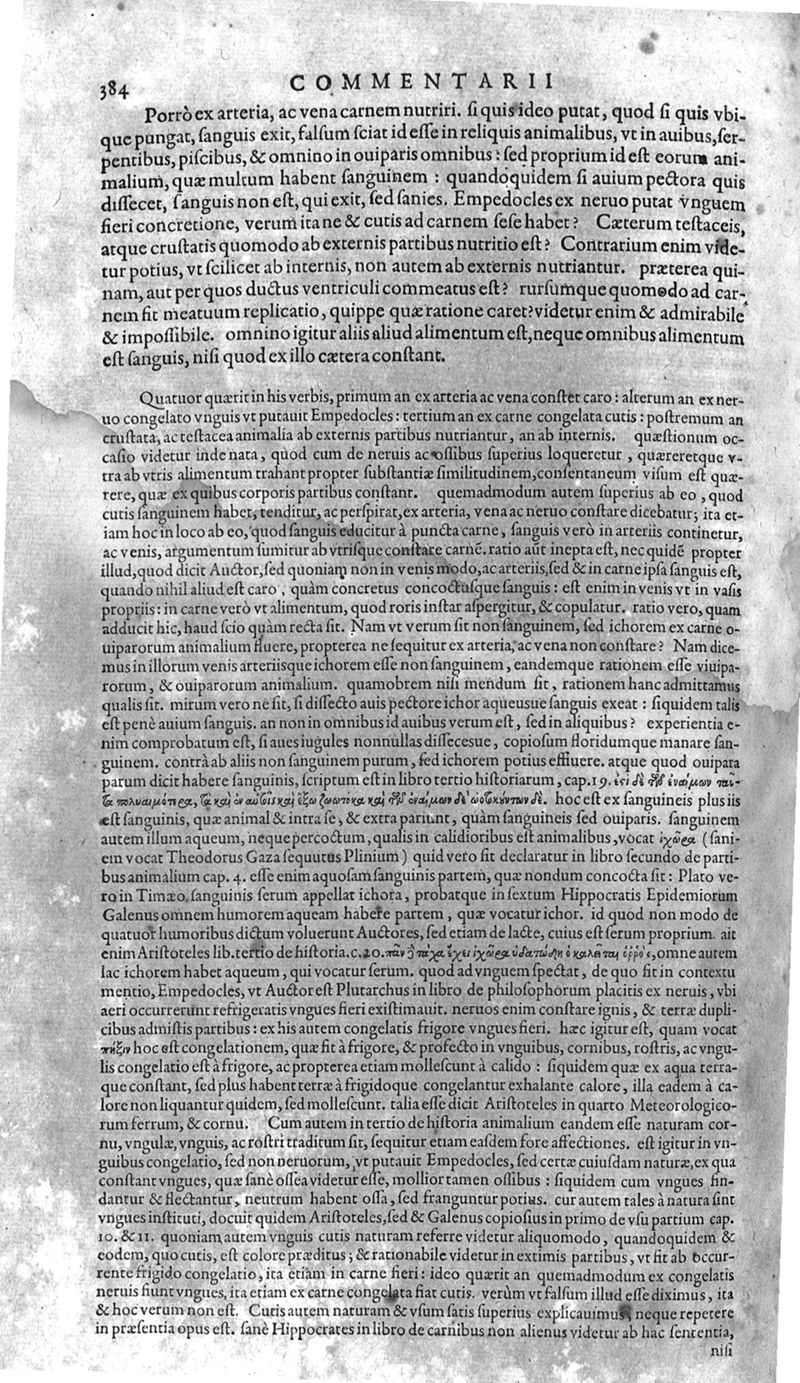 384
COMMENTARII
Porrò ex arteria, ac vena carnem nutriri. ſi quis ideo putat, quod ſi quis vbi-
que pungat, ſanguis exit, falſum ſciat id eſſe in reliquis animalibus, vt in auibus, ſer-
pentibus, piſcibus, & omnino in ouiparis omnibus : ſed proprium id eſt eorum ani-
malium, quæ multum habent ſanguinem : quandoquidem ſi auium pectora quis
diſſecet, ſanguis non eſt, qui exit, ſed ſanies. Empedocles ex neruo putat vnguem
fieri concretione, verum ita ne & cutis ad carnem ſeſe habet? Cæterum teſtaceis,
atque cruſtatis quomodo ab externis partibus nutritio eſt? Contrarium enim vide-
tur potius, vt ſcilicet ab internis, non autem ab externis nutriantur. præterea qui-
nam, aut per quos ductus ventriculi commeatus eſt? rurſumque quomodo ad car-
nem fit meatuum replicatio, quippe quæ ratione caret? videtur enim & admirabile
& impoſſibile. omnino igitur aliis aliud alimentum eſt, neque omnibus alimentum
eſt ſanguis, niſi quod ex illo cætera conſtant.
Quatuor quærit in his verbis, primum an ex arteria ac vena conſtet caro : alterum an ex ner-
uo congelato vnguis vt putauit Empedocles : tertium an ex carne congelata cutis : poſtremum an
cruſtata, ac teſtacea animalia ab externis partibus nutriantur, an ab internis. quæſtionum oc-
caſio videtur inde nata, quod cum de neruis ac oſſibus ſuperius loqueretur, quæreretque v-
tra ab vtris alimentum trahant propter ſubſtantiæ ſimilitudinem, conſentaneum viſum eſt quæ-
rere, quæ ex quibus corporis partibus conſtant. quemadmodum autem ſuperius ab eo, quod
cutis ſanguinem habet, tenditur, ac perſpirat, ex arteria, vena ac neruo conſtare dicebatur; ita et-
iam hoc in loco ab eo, quod ſanguis educitur à puncta carne, ſanguis verò in arteriis continetur,
ac venis, argumentum ſumitur ab vtriſque conſtare carnẽ. ratio aũt inepta eſt, nec quidẽ propter
illud, quod dicit Auctor, ſed quoniam non in venis modo, ac arteriis, ſed & in carne ipſa ſanguis eſt,
quando nihil aliud eſt caro, quàm concretus concoctuſque ſanguis : eſt enim in venis vt in vaſis
propriis : in carne verò vt alimentum, quod roris inſtar aſpergitur, & copulatur. ratio vero, quam
adducit hic, haud ſcio quàm recta ſit. Nam vt verum ſit non ſanguinem, ſed ichorem ex carne o-
uiparorum animalium fluere, propterea ne ſequitur ex arteria, ac vena non conſtare? Nam dice-
mus in illorum venis arteriisque ichorem eſſe non ſanguinem, eandemque rationem eſſe viuipa-
rorum, & ouiparorum animalium. quamobrem niſi mendum ſit, rationem hanc admittamus
qualis ſit. mirum vero ne ſit, ſi diſſecto auis pectore ichor aqueusue ſanguis exeat : ſiquidem talis
eſt penè auium ſanguis. an non in omnibus id auibus verum eſt, ſed in aliquibus? experientia e-
nim comprobatum eſt, ſi aues iugules nonnullas diſſecesue, copioſum floridumque manare ſan-
guinem. contrà ab aliis non ſanguinem purum, ſed ichorem potius effluere. atque quod ouipara
parum dicit habere ſanguinis, ſcriptum eſt in libro tertio hiſtoriarum, cap. 19.
hoc eſt ex ſanguineis plus iis
eſt ſanguinis, quæ animal & intra ſe, & extra pariunt, quàm ſanguineis ſed ouiparis. ſanguinem
autem illum aqueum, neque percoctum, qualis in calidioribus eſt animalibus, vocat ἰχῶρα (ſani-
em vocat Theodorus Gaza ſequutus Plinium) quid vero ſit declaratur in libro ſecundo de parti-
bus animalium cap. 4. eſſe enim aquoſam ſanguinis partem, quæ nondum concocta ſit : Plato ve-
ro in Timæo, ſanguinis ſerum appellat ichora, probatque in ſextum Hippocratis Epidemiorum
Galenus omnem humorem aqueam habere partem, quæ vocatur ichor. id quod non modo de
quatuor humoribus dictum voluerunt Auctores, ſed etiam de lacte, cuius eſt ſerum proprium. ait
enim Ariſtoteles lib. tertio de hiſtoria. c. 20. omne autem
lac ichorem habet aqueum, qui vocatur ſerum. quod ad vnguem ſpectat, de quo fit in contextu
mentio, Empedocles, vt Auctor eſt Plutarchus in libro de philoſophorum placitis ex neruis, vbi
aeri occurrerunt refrigeratis vngues fieri exiſtimauit. neruos enim conſtare ignis, & terræ dupli-
cibus admiſtis partibus : ex his autem congelatis frigore vngues fieri. hæc igitur eſt, quam vocat
πῆξιν hoc eſt congelationem, quæ fit à frigore, & profecto in vnguibus, cornibus, roſtris, ac vngu-
lis congelatio eſt à frigore, ac propterea etiam molleſcunt à calido : ſiquidem quæ ex aqua terra-
que conſtant, ſed plus habent terræ à frigidoque congelantur exhalante calore, illa eadem à ca-
lore non liquantur quidem, ſed molleſcunt. talia eſſe dicit Ariſtoteles in quarto Meteorologico-
rum ferrum, & cornu. Cum autem in tertio de hiſtoria animalium eandem eſſe naturam cor-
nu, vngulæ, vnguis, ac roſtri traditum ſit, ſequitur etiam eaſdem fore affectiones. eſt igitur in vn-
guibus congelatio, ſed non neruorum, vt putauit Empedocles, ſed certæ cuiuſdam naturæ, ex qua
conſtant vngues, quæ ſanè oſſea videtur eſſe, mollior tamen oſſibus : ſiquidem cum vngues fin-
dantur & flectantur, neutrum habent oſſa, ſed franguntur potius. cur autem tales à natura ſint
vngues inſtituti, docuit quidem Ariſtoteles, ſed & Galenus copioſius in primo de vſu partium cap.
10. & 11. quoniam autem vnguis cutis naturam referre videtur aliquomodo, quandoquidem &
eodem, quo cutis, eſt colore præditus; & rationabile videtur in extimis partibus, vt fit ab occur-
rente frigido congelatio, ita etiam in carne fieri : ideo quærit an quemadmodum ex congelatis
neruis fiunt vngues, ita etiam ex carne congelata fiat cutis. verùm vt falſum illud eſſe diximus, ita
& hoc verum non eſt. Cutis autem naturam & vſum ſatis ſuperius explicauimus, neque repetere
in præſentia opus eſt. ſanè Hippocrates in libro de carnibus non alienus videtur ab hac ſententia,
niſi